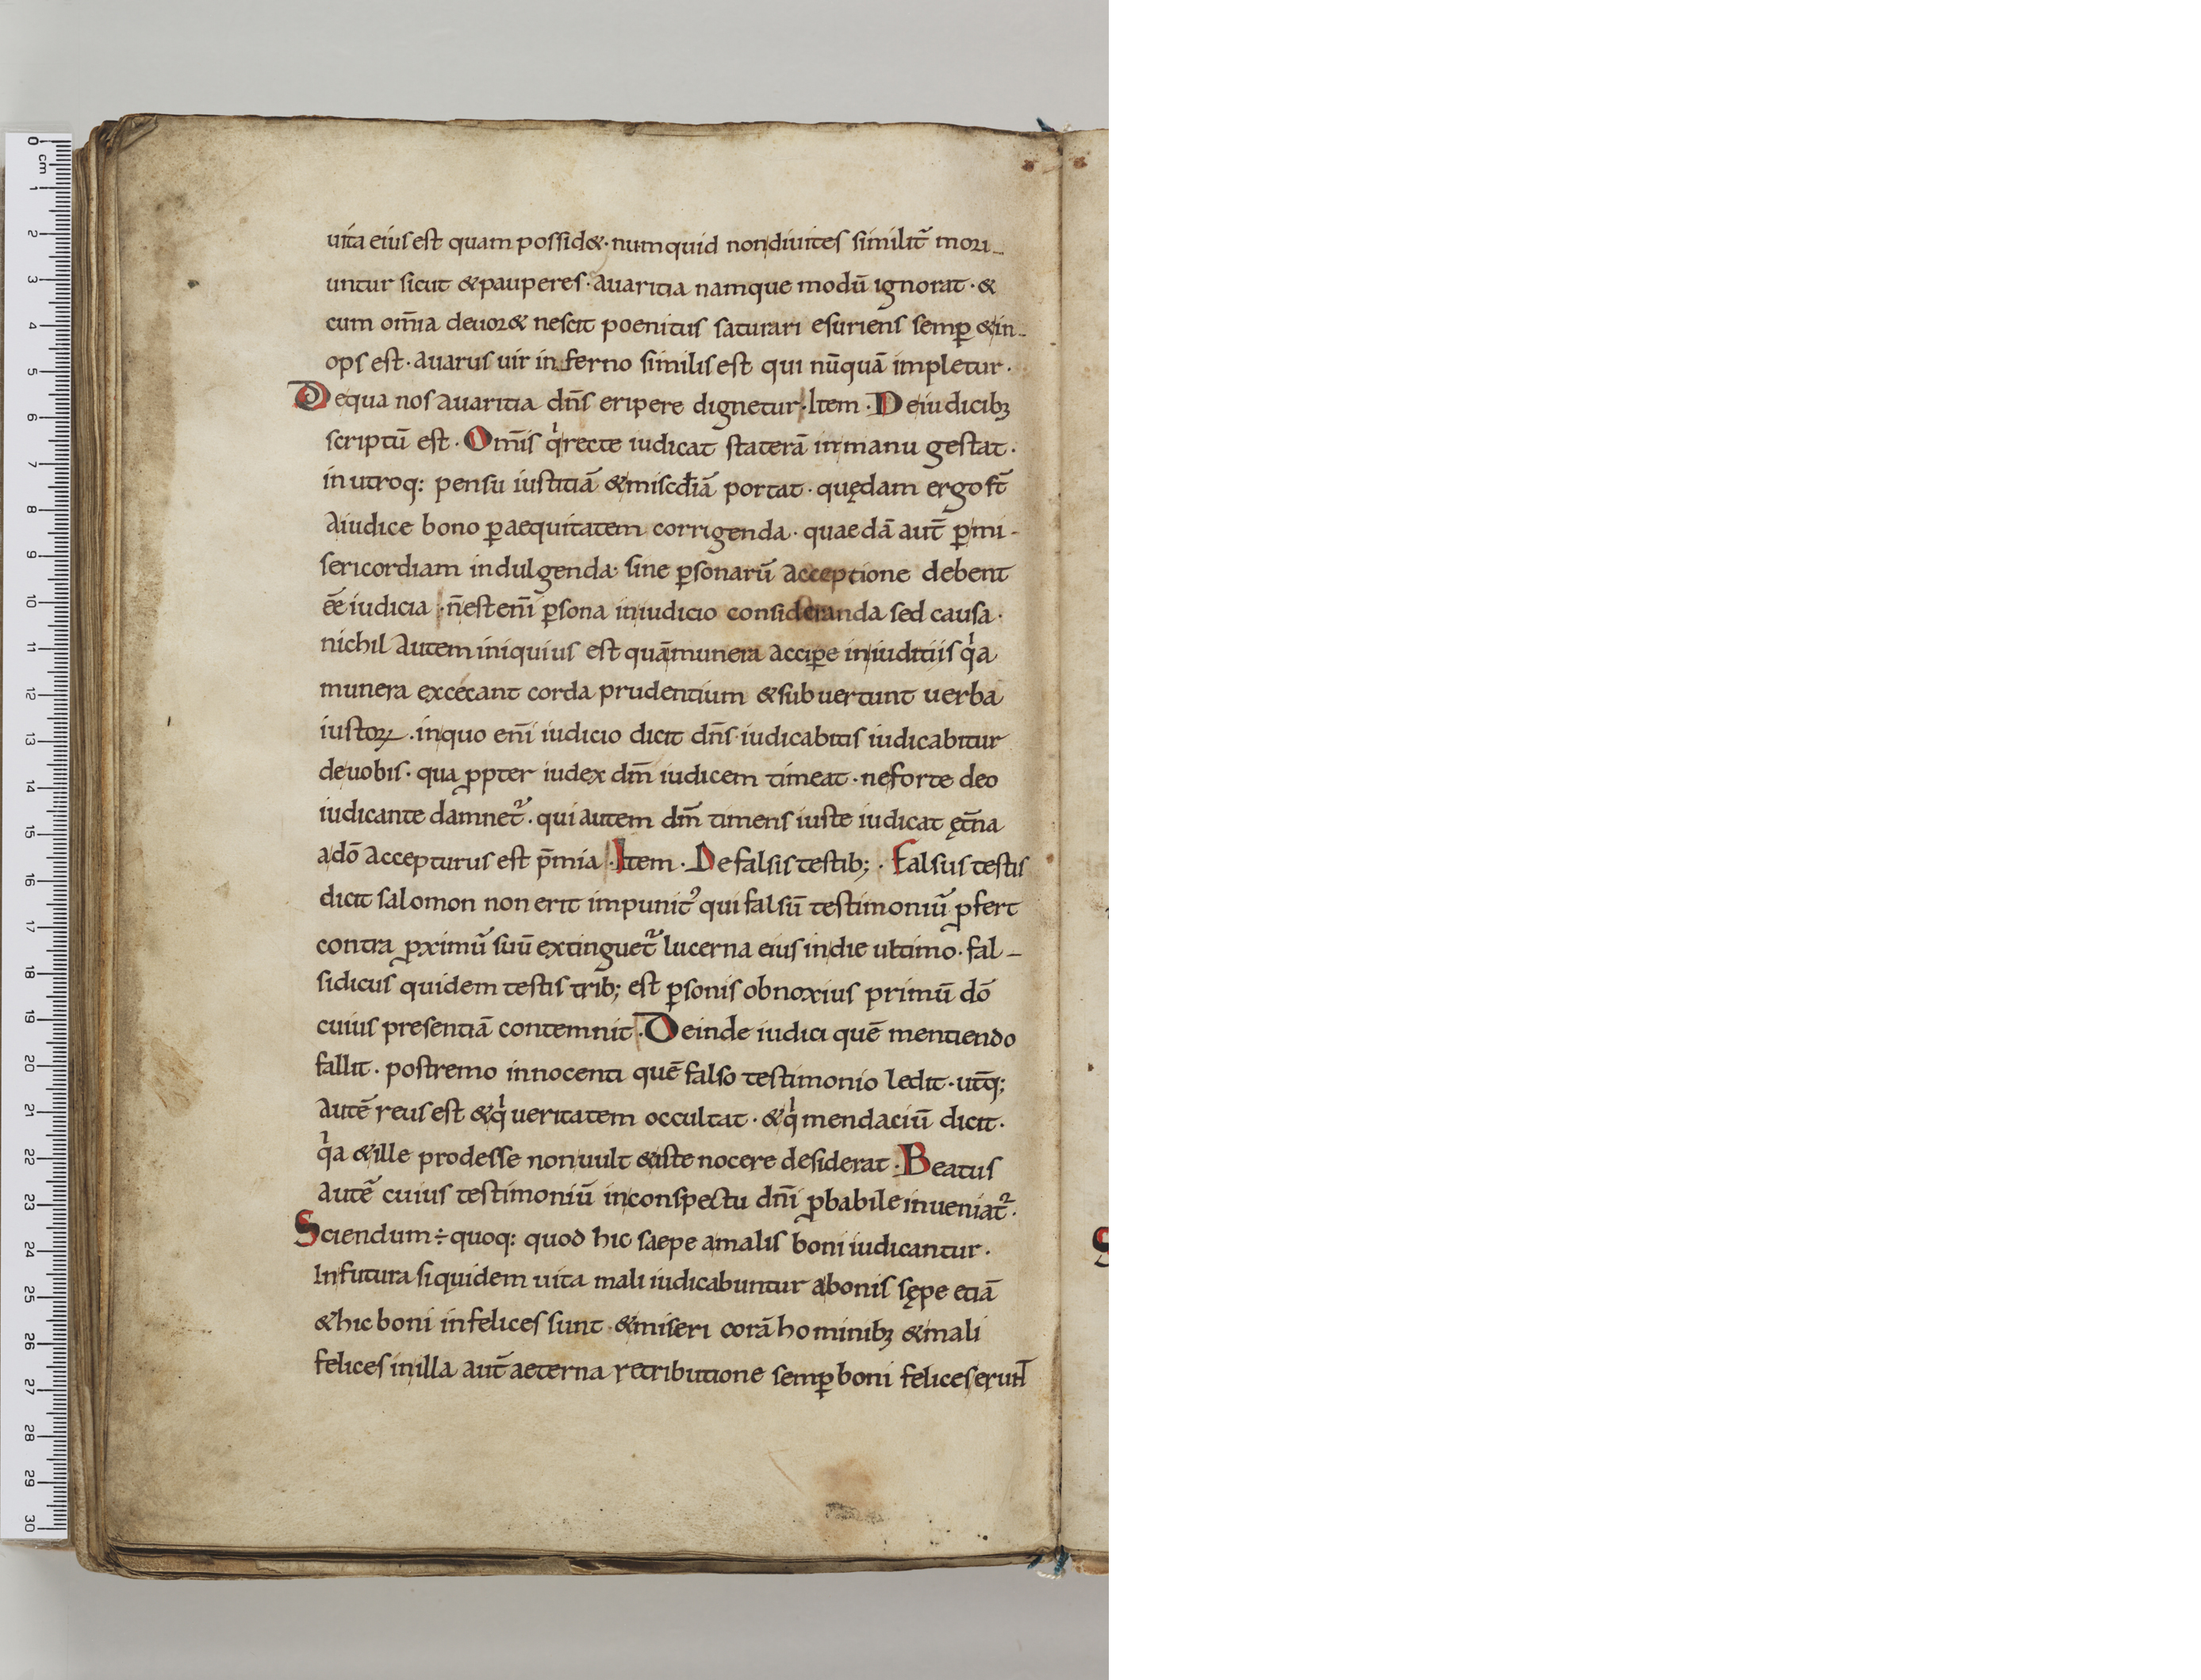 uita eius est quam possid&· numquid non diuites similit̃ mori-
untur sicut & pauperes· auaritia namque modū ignorat· &
cum om̄ia deuor& nescit poenitus saturari esuriens semp̱ & in-
ops est· auarus uir inferno similis est qui nūquā impletur·
De qua nos auaritia dn̄s eripere dignetur· Item· De iudicibꝫ
scriptū est· Om̄is qͥ recte iudicat staterā in manu gestat·
in utroq: pensu iustitiā & misc̄diā portat· quędam ergo st̄
a iudice bono ꝑ aequitatem corrigenda· quaedā aut̄ ꝑ mi-
sericordiam indulgenda· sine ꝑsonarū acceptione debent
ēe iudicia· n̄ est en̄i ꝑsona in iudicio consideranda sed causa·
nichil autem iniquius est quā munera accipe in iuditiis qͥa
munera excęcant corda prudentium & subuertunt uerba
iustoꝝ· in quo en̄i iudicio dicit dn̄s· iudicabitis iudicabitur
de uobis· qua ꝓpter iudex dm̄ iudicem timeat· ne forte deo
iudicante damnet᷑· qui autem dm̄ timens iuste iudicat ęt̄na
a dō accepturus est p̄mia· Item· De falsis testib;· Falsus testis
dicit salomon non erit impunit᾽ qui falsū testimoniū ꝓfert
contra ꝓximū suū extinguet᷑ lucerna eius in die ultimo· fal-
sidicus quidem testis trib; est ꝑsonis obnoxius primū dō
cuius presentiā contemnit· Deinde iudici quē mentiendo
fallit· postremo innocenti quē falso testimonio ledit· ut̄q;
autē reus est & qͥ ueritatem occultat· & qͥ mendaciū dicit·
qͥa & ille prodesse non uult & iste nocere desiderat· Beatus
autē cuius testimoniū in conspectu dn̄i ꝓbabile inueniat᷑·
Sciendum ÷ quoq: quod hic saepe a malis boni iudicantur·
In futura siquidem uita mali iudicabuntur a bonis sępe etiā
& hic boni infelices sunt· & miseri corā hominibꝫ & mali
felices in illa aut̄ aeterna retributione semꝑ boni felices erunt
0 cm 1 2 3 4 5 6 7 8 9 10 11 12 13 14 15 16 17 18 19 20 21 22 23 24 25 26 27 28 29 30